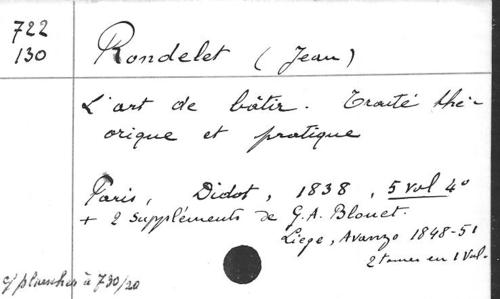 722
130
Rondelet (Jean)
L'art de bâtir. Traité thé-
orique et pratique
Paris, Didot, 1838, 5 vol 4°
+ 2 Suppléments de G.A. Blouet.
Liege, Avanzo 1848-51
2 tomes en 1 Vol.
c/ planches à 730/20